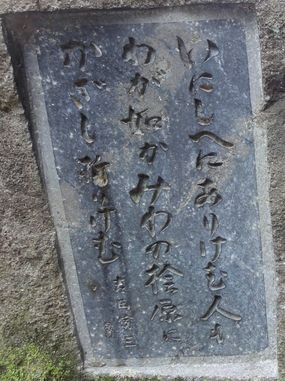 いにしへにありけむ人も
わが如かみわの桧原に
かざし折りけむ